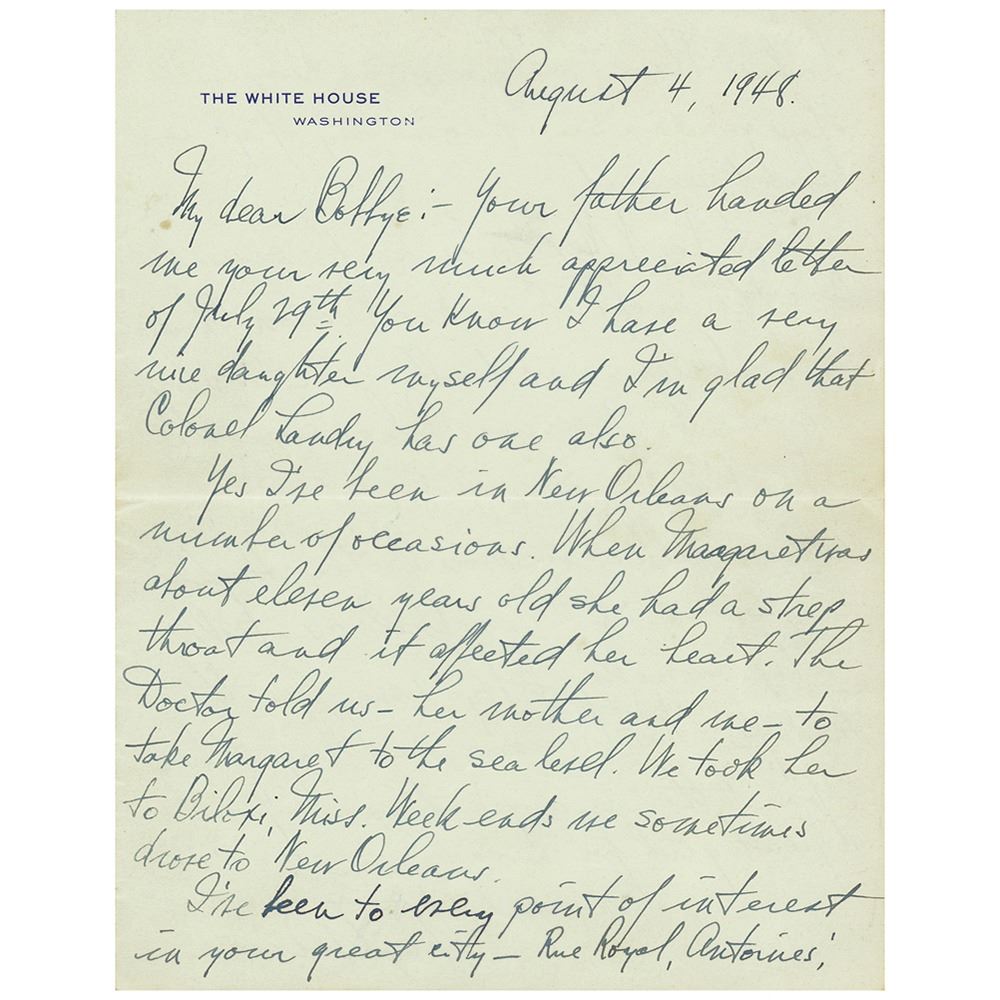 THE WHITE HOUSE
WASHINGTON
August 4, 1948.
My dear Bobbye:- Your father handed
me your very much appreciated letter
of July 29th. You know I have a very
nice daughter myself and I'm glad that
Colonel Landry has one also.
Yes I've been in New Orleans on a
number of occasions. When Margaret was
about eleven years old she had a strep
throat and it affected her heart. The
Doctor told us - her mother and me - to
take Margaret to the sea level. We took her
to Biloxi, Miss. Week ends we sometimes
drove to New Orleans.
I've been to every point of interest
in your great city - Rue Royal, Antoines',